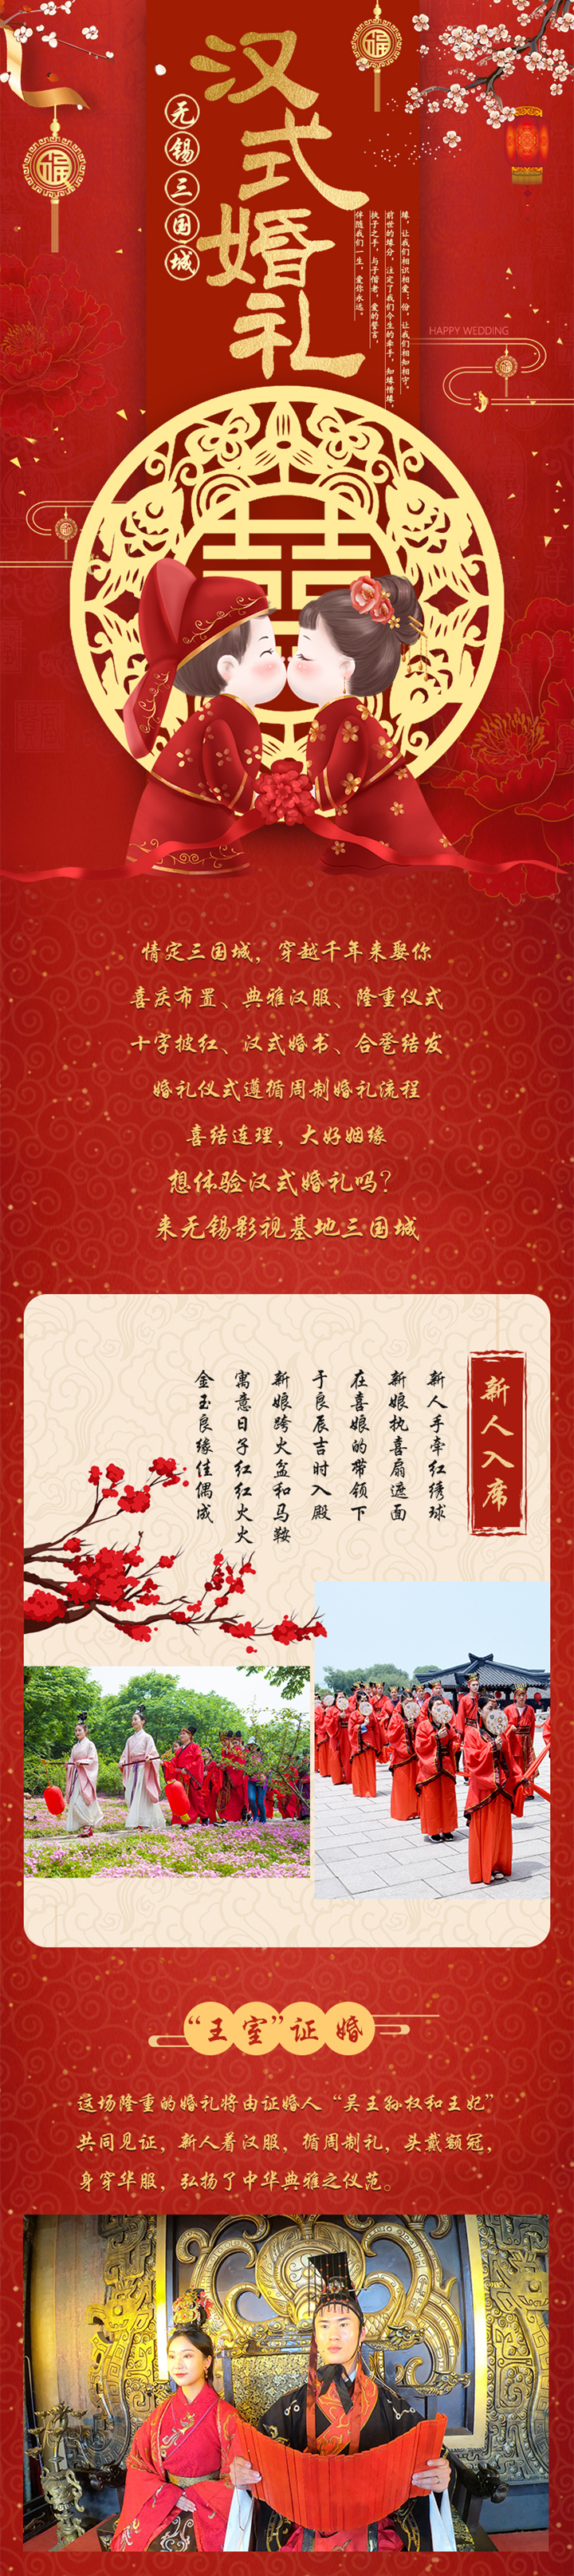 汉式婚礼
无锡三国城
缘，让我们相识相爱；份，让我们相知相守。
前世的缘分，注定了我们今生的牵手，知缘惜缘，
执子之手，与子偕老，爱的誓言，
伴随我们一生，爱你永远。
HAPPY WEDDING
福
福
囍
情定三国城，穿越千年来娶你
喜庆布置、典雅汉服、隆重仪式
十字披红、汉式婚书、合卺结发
婚礼仪式遵循周制婚礼流程
喜结连理，大好姻缘
想体验汉式婚礼吗？
来无锡影视基地三国城
新人入席
新人手牵红绣球
新娘执喜扇遮面
在喜娘的带领下
于良辰吉时入殿
新娘跨火盆和马鞍
寓意日子红红火火
金玉良缘佳偶成
“王室”证婚
这场隆重的婚礼将由证婚人“吴王孙权和王妃”
共同见证，新人着汉服，循周制礼，头戴额冠，
身穿华服，弘扬了中华典雅之仪范。